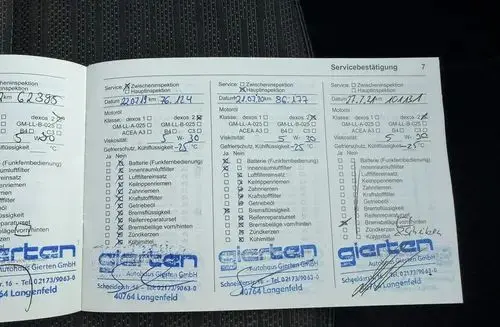 Servicebestätigung 7
wischeninspektion
auptinspektion
km 62395
dexos 2
GM-LL-B-025
C3
W-30
ühlflüssigkeit -25 °C
(Funkfernbedienung)
umluftfilter
tereinsatz
nenriemen
men
ilter
l
sigkeit
raturset
äge vorn/
n
Service: Zwischeninspektion
Hauptinspektion
Datum 22.07.19 km 76.124
Motoröl
Klasse: dexos 1 dexos 2
GM-LL-A-025 GM-LL-B-025
ACEA A3 B4 C3
Viskosität 5 W-30
Gefrierschutz, Kühlflüssigkeit -25 °C
Ja Nein
Batterie (Funkfernbedienung)
Innenraumluftfilter
Luftfiltereinsatz
Keilrippenriemen
Zahnriemen
Kraftstofffilter
Getriebeöl
Bremsflüssigkeit
Reifenreparaturset
Bremsbeläge vorn/hinten
Zündkerzen
Kühlmittel
Service: Zwischeninspektion
Hauptinspektion
Datum 21.07.20 km 86.177
Motoröl
Klasse: dexos 1 dexos 2
GM-LL-A-025 GM-LL-B-025
ACEA A3 B4 C3
Viskosität 5 W-30
Gefrierschutz, Kühlflüssigkeit -25 °C
Ja Nein
Batterie (Funkfernbedienung)
Innenraumluftfilter
Luftfiltereinsatz
Keilrippenriemen
Zahnriemen
Kraftstofffilter
Getriebeöl
Bremsflüssigkeit
Reifenreparaturset
Bremsbeläge vorn/hinten
Zündkerzen
Kühlmittel
Service: Zwischeninspektion
Hauptinspektion
Datum
Motoröl
Klasse: dexos 1 dexos 2
GM-LL-A-025 GM-LL-B-025
ACEA A3 B4 C3
Viskosität 5 W-30
Gefrierschutz, Kühlflüssigkeit -25 °C
Ja Nein
Batterie (Funkfernbedienung)
Innenraumluftfilter
Luftfiltereinsatz
Keilrippenriemen
Zahnriemen
Kraftstofffilter
Getriebeöl
Bremsflüssigkeit
Reifenreparaturset
Bremsbeläge vorn/hinten
Zündkerzen Scheiben
Kühlmittel
gierten
Autohaus Gierten GmbH
Tel. 02173/9063-0
Langenfeld
gierten
Autohaus Gierten GmbH
Schneiderstr. 16 - Tel. 02173/9063-0
40764 Langenfeld
gierten
Autohaus Gierten GmbH
Schneiderstr. 16 - Tel. 02173/9063-0
40764 Langenfeld
gierten
Autohaus Gierten GmbH
Schneiderstr. 16 - Tel. 02173/9063-0
40764 Langenfeld